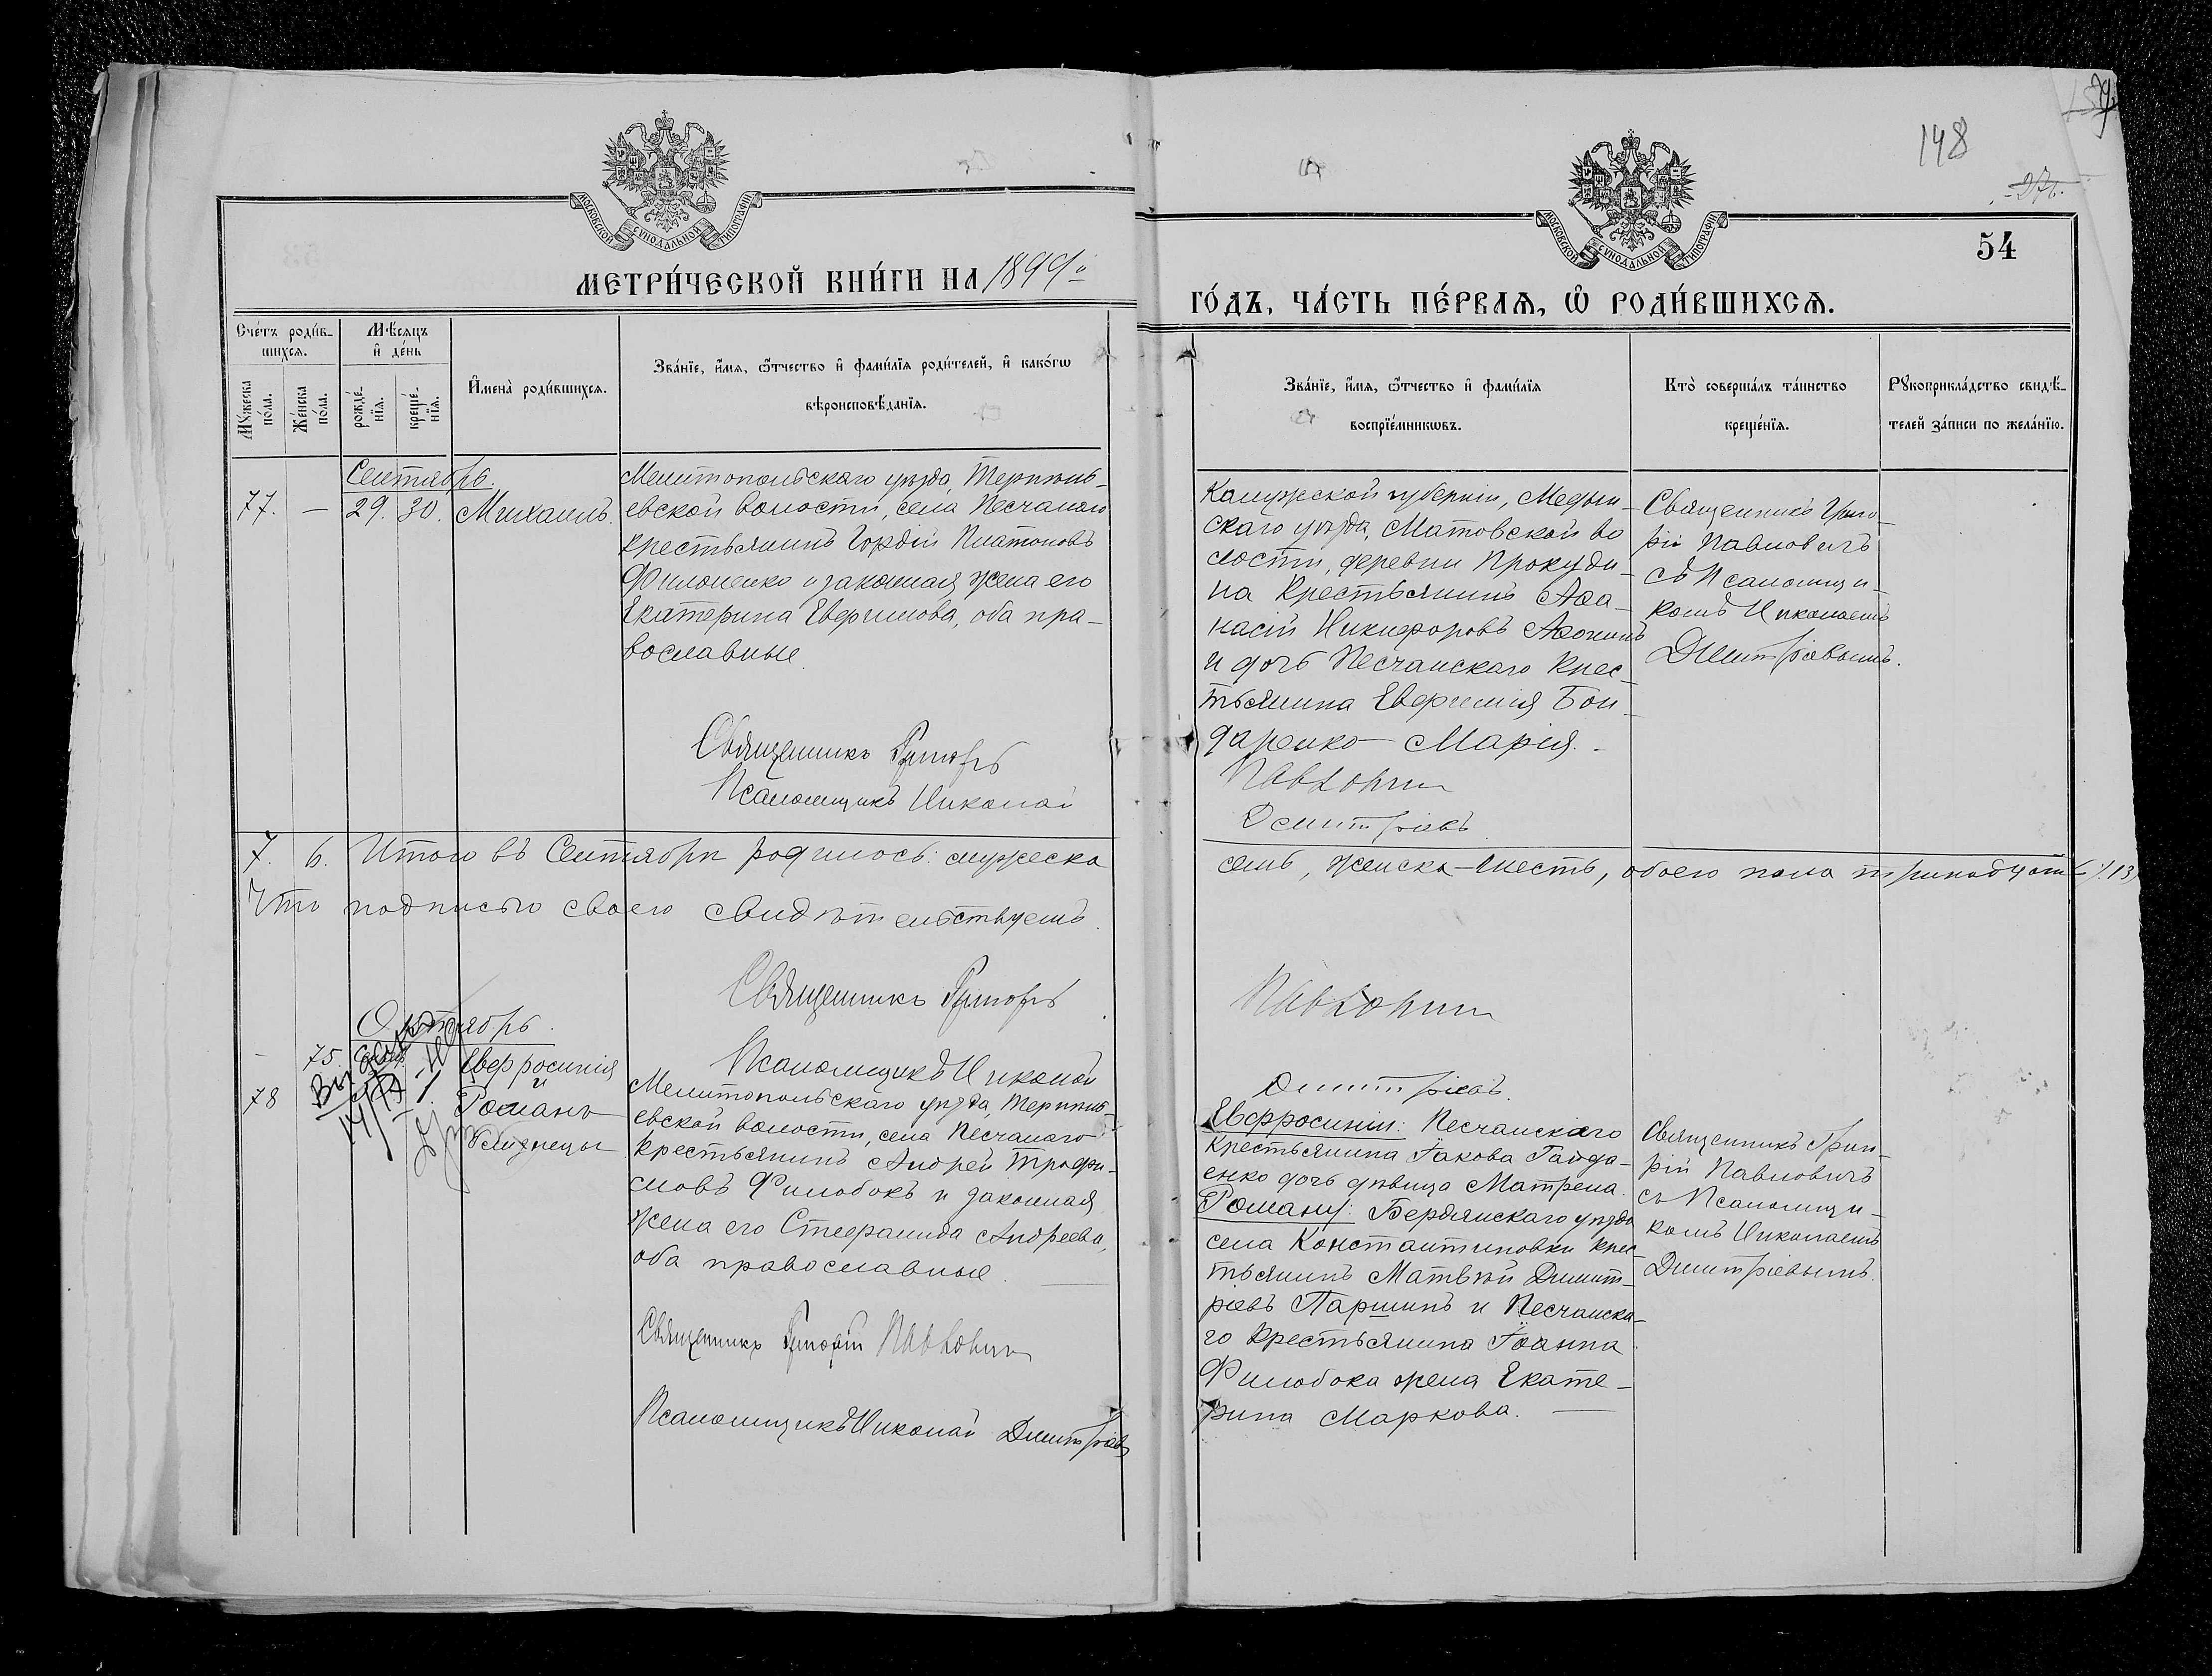 148
54
МОСКОВСКОЙ СѴНОДАЛЬНОЙ ТИПОГРАФІИ
МОСКОВСКОЙ СѴНОДАЛЬНОЙ ТИПОГРАФІИ
МЕТРИ́ЧЕСКОЙ КНИ́ГИ НА 1899й
ГО́ДЪ, ЧА́СТЬ ПЕ́РВАѦ, Ѡ РОДИ́ВШИХСѦ.
Сче́тъ роди́в-
шихсѧ.
Мꙋ́жеска по́ла.
Же́нска по́ла.
Мѣ́сѧцъ и҆ де́нь
рожде́-нїѧ.
креще́-нїѧ.
И҆мена̀ роди́вшихсѧ.
Зва́нїе, и҆́мѧ, ѻ҆́тчество и҆ фами́лїѧ роди́телей, и҆ како́гѡ
вѣроисповѣ́данїѧ.
Зва́нїе, и҆́мѧ, ѻ҆́тчество и҆ фами́лїѧ
воспрїе́мникѡвъ.
Кто̀ соверша́лъ та́инство
креще́нїѧ.
Рꙋкоприкла́дство свидѣ́-
телей за́писи по жела́нїю.
Сентябрь.
77. — 29. 30. Михаилъ.
Мелитопольскаго уѣзда, Терпѣнь-
евской волости, села Песчанаго
крестьянинъ Гордій Платоновъ
Филоненко и законная жена его
Екатерина Евфимова, оба пра-
вославные.
Священникъ Григорій
Псаломщикъ Николай
Калужской губерніи, Медын-
скаго уѣзда, Матовской во
лости, деревни Прокуди-
на крестьянинъ Аѳа-
насій Никифоровъ Аѳонинъ
и дочь Песчанскаго крес-
тьянина Евфимія Бон-
даренко — Марія. -
Павловичъ
Димитріевъ
Священникъ Григо-
рій Павловичъ
съ Псаломщи-
комъ Николаемъ
Димитріевымъ.
7. 6. Итого въ Сентябрѣ родилось: мужеска
семь, женска — шесть, обоего пола тринадцать /13/
Что подписью своею свидѣтельствуемъ.
Священникъ Григорій
Павловичъ
Псаломщикъ Николай
Димитріевъ.
Октябрь.
- 75
78
Евфросинія
и
Романъ
близнецы
Мелитопольскаго уѣзда, Терпѣнь-
евской волости, села Песчанаго
крестьянинъ Андрей Трофи-
мовъ Филобокъ и законная
жена его Стефанида Андреева,
оба православные.
Священникъ Григорій Павловичъ
Псаломщикъ Николай Димитріевъ
Евфросиніи: Песчанскаго
крестьянина Іакова Гайда-
енко дочь дѣвица Матрена.
Роману: Бердянскаго уѣзда
села Константиновки крес-
тьянинъ Матвѣй Димит-
ріевъ Паршинъ и Песчанска-
го крестьянина Іоанна
Филобока жена Екате-
рина Маркова.
Священникъ Григо-
рій Павловичъ
съ Псаломщи-
комъ Николаемъ
Димитріевымъ.